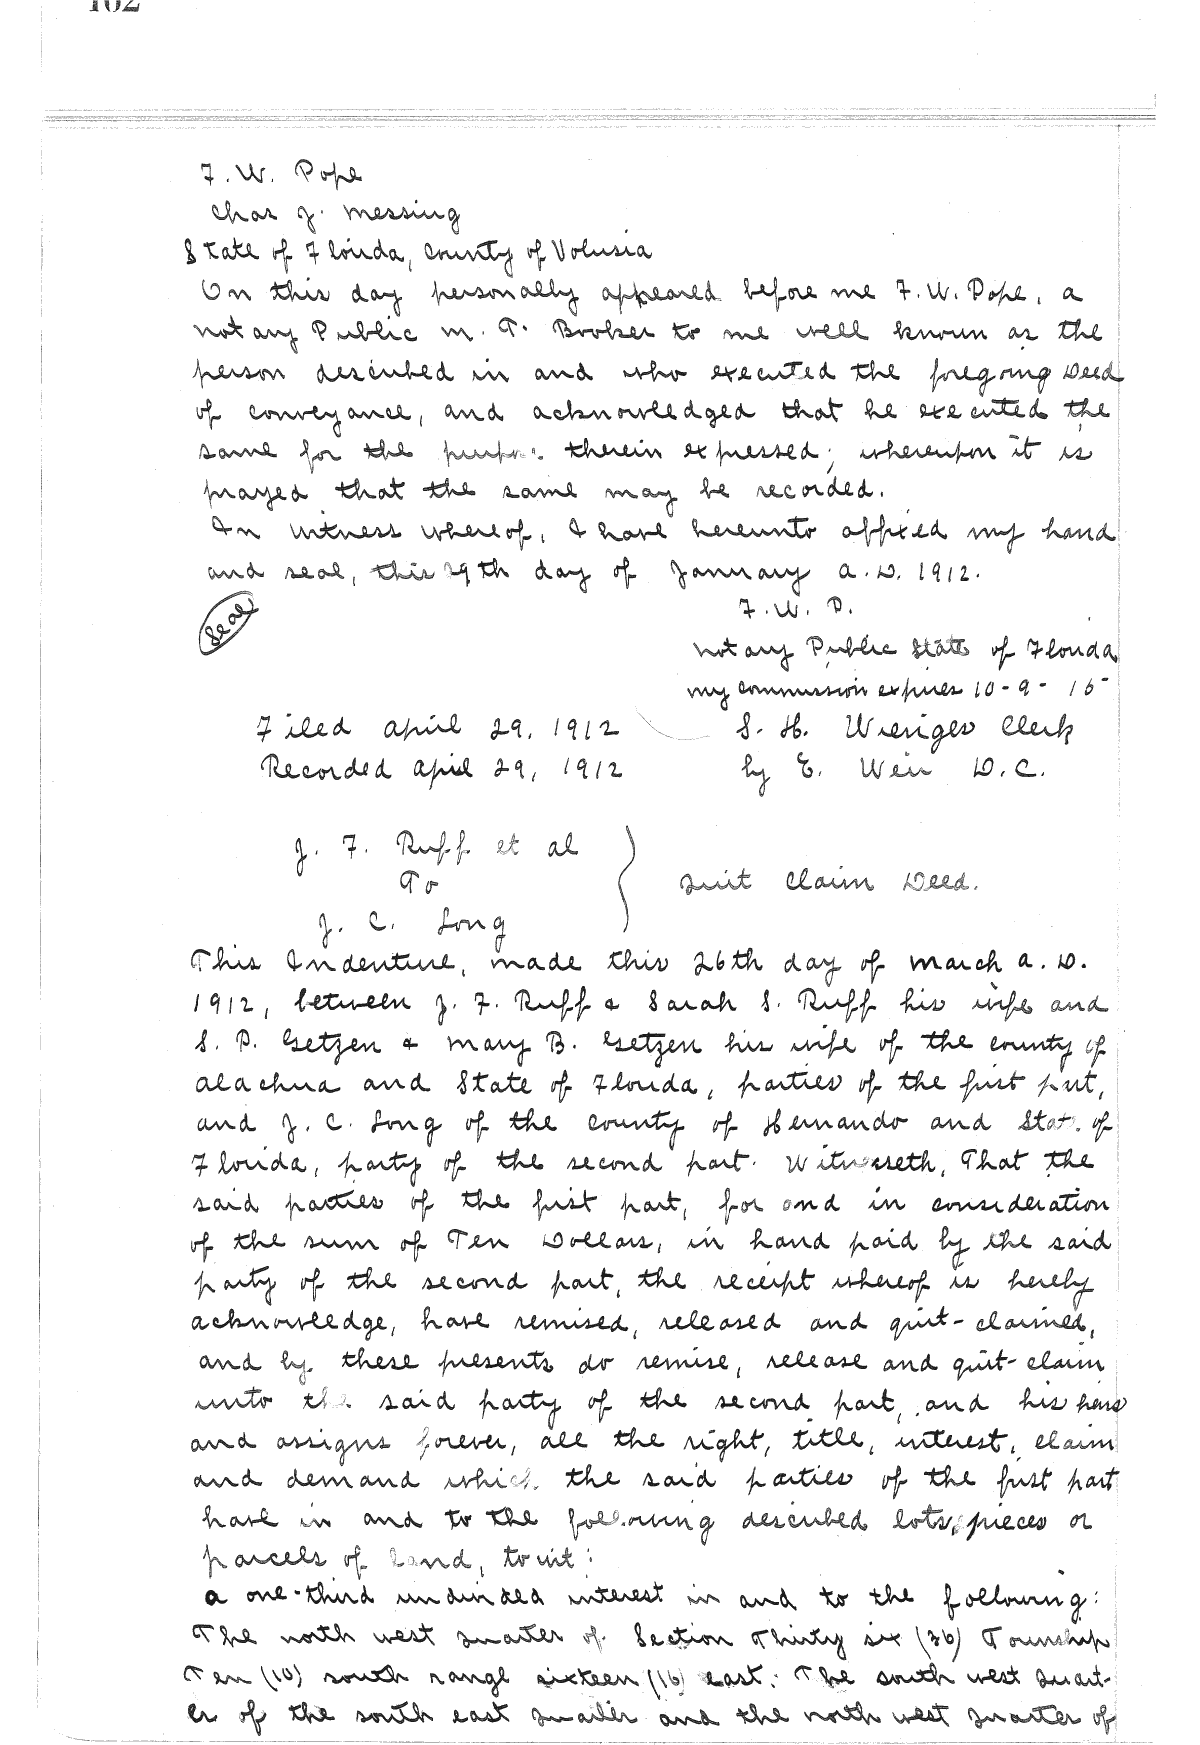 162
F. W. Pope
Chas J. Messing
State of Florida, County of Volusia
On this day personally appeared before me F. W. Pope, a
Notary Public M. T. Booker to me well known as the
person described in and who executed the foregoing Deed
of conveyance, and acknowledged that he executed the
same for the therein expressed; whereupon it is
prayed that the same may be recorded.
In witness whereof, I have hereunto affixed my hand
and seal, this 29th day of January A.D. 1912.
F. W. P.
Seal
Notary Public State of Florida
my commission expires 10-9-15
Filed April 29, 1912 S. H. Wienges Clerk
Recorded April 29, 1912 by E. Weir D.C.
J. F. Ruff et al
To Quit Claim Deed.
J. C. Long
This Indenture, made this 26th day of March A.D.
1912, between J. F. Ruff & Sarah S. Ruff his wife and
S. P. Getzen & Mary B. Getzen his wife of the county of
Alachua and State of Florida, parties of the first part,
and J. C. Long of the county of Hernando and State of
Florida, party of the second part. Witnesseth, That the
said parties of the first part, for and in consideration
of the sum of Ten Dollars, in hand paid by the said
party of the second part, the receipt whereof is hereby
acknowledge, have remised, released and quit-claimed,
and by these presents do remise, release and quit-claim
unto the said party of the second part, and his heirs
and assigns forever, all the right, title, interest, claim
and demand which the said parties of the first part
have in and to the following described lots, pieces or
parcels of land, to wit:
a one-third undivided interest in and to the following:
The north west quarter of Section Thirty six (36) Township
Ten (10) south range sixteen (16) east. The south west quart-
er of the south east quarter and the north west quarter of